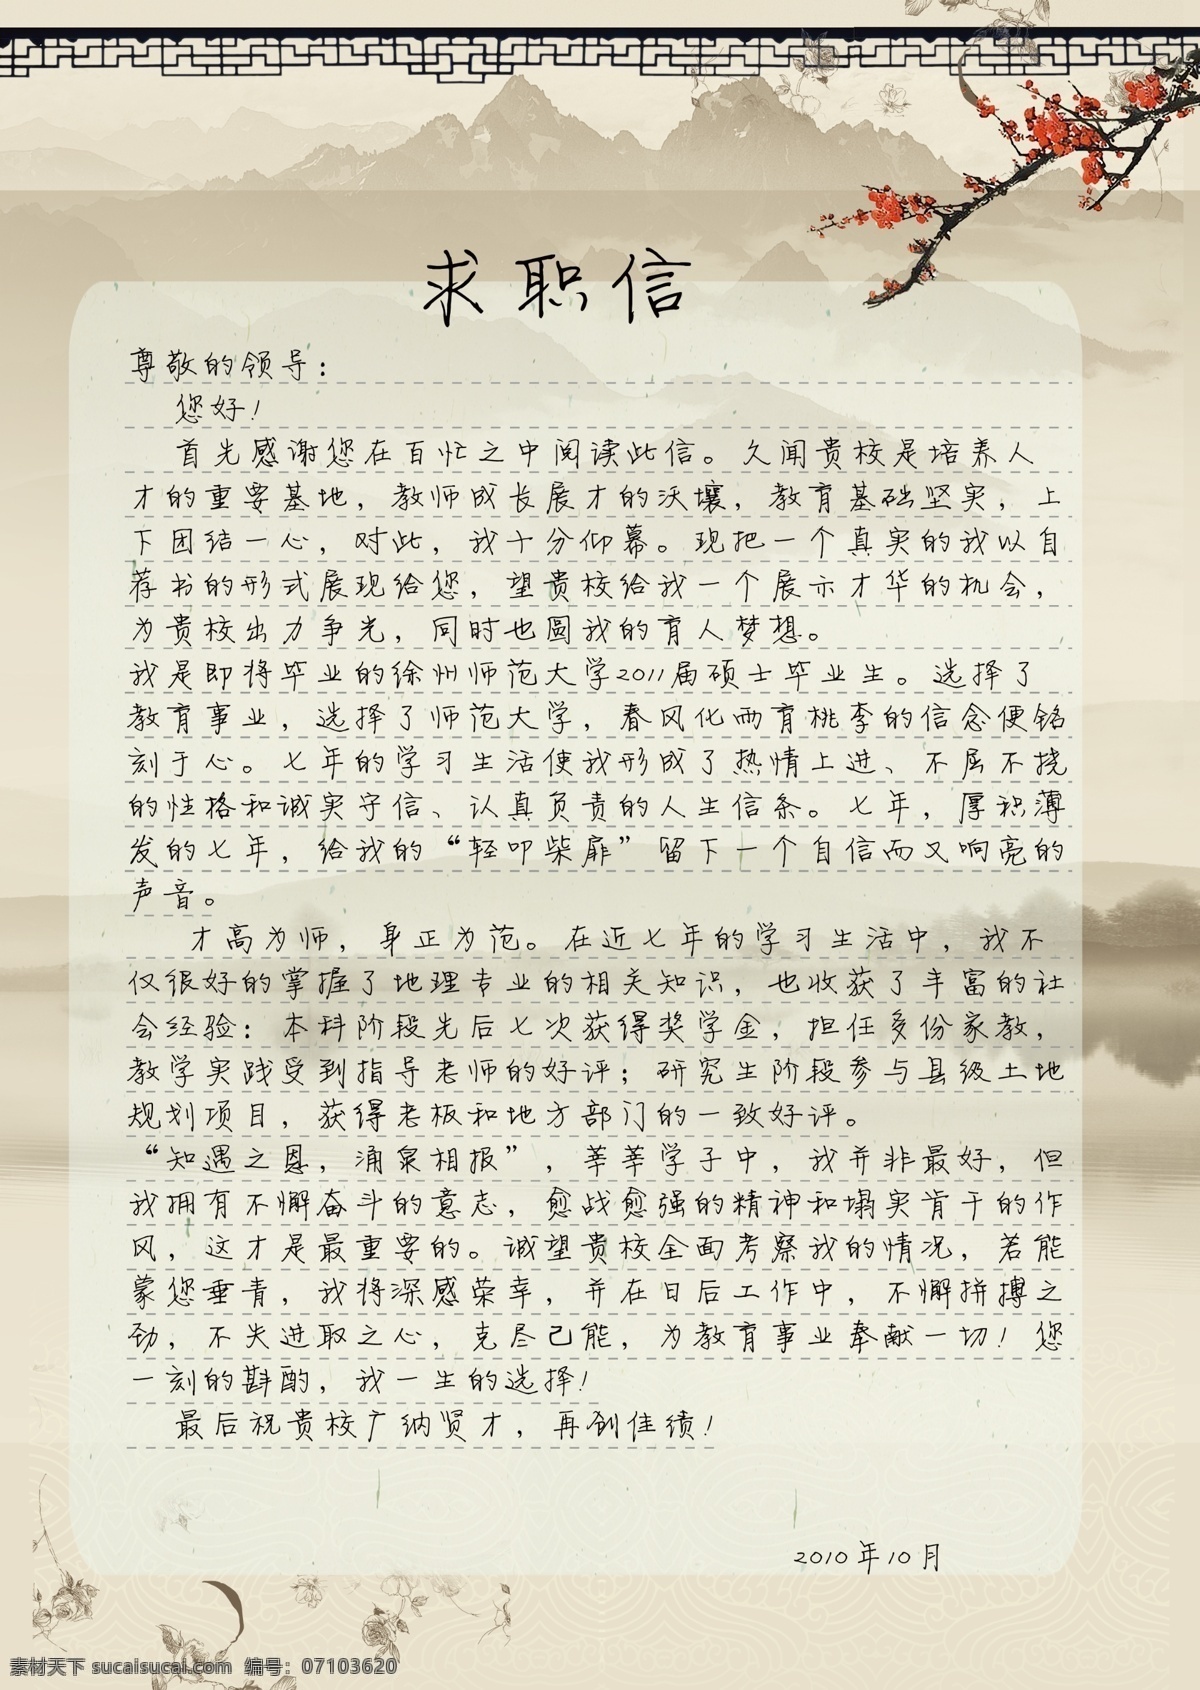 求职信
尊敬的领导：
您好！
首先感谢您在百忙之中阅读此信。久闻贵校是培养人
才的重要基地，教师成长展才的沃壤，教育基础坚实，上
下团结一心，对此，我十分仰幕。现把一个真实的我以自
荐书的形式展现给您，望贵校给我一个展示才华的机会，
为贵校出力争光，同时也圆我的育人梦想。
我是即将毕业的徐州师范大学2011届硕士毕业生。选择了
教育事业，选择了师范大学，春风化雨育桃李的信念便铭
刻于心。七年的学习生活使我形成了热情上进、不屈不挠
的性格和诚实守信、认真负责的人生信条。七年，厚积薄
发的七年，给我的“轻叩柴扉”留下一个自信而又响亮的
声音。
才高为师，身正为范。在近七年的学习生活中，我不
仅很好的掌握了地理专业的相关知识，也收获了丰富的社
会经验：本科阶段先后七次获得奖学金，担任多份家教，
教学实践受到指导老师的好评；研究生阶段参与县级土地
规划项目，获得老板和地方部门的一致好评。
“知遇之恩，涌泉相报”，莘莘学子中，我并非最好，但
我拥有不懈奋斗的意志，愈战愈强的精神和塌实肯干的作
风，这才是最重要的。诚望贵校全面考察我的情况，若能
蒙您垂青，我将深感荣幸，并在日后工作中，不懈拼搏之
劲，不失进取之心，克尽己能，为教育事业奉献一切！您
一刻的斟酌，我一生的选择！
最后祝贵校广纳贤才，再创佳绩！
2010年10月
素材天下 sucaisucai.com 编号：07103620